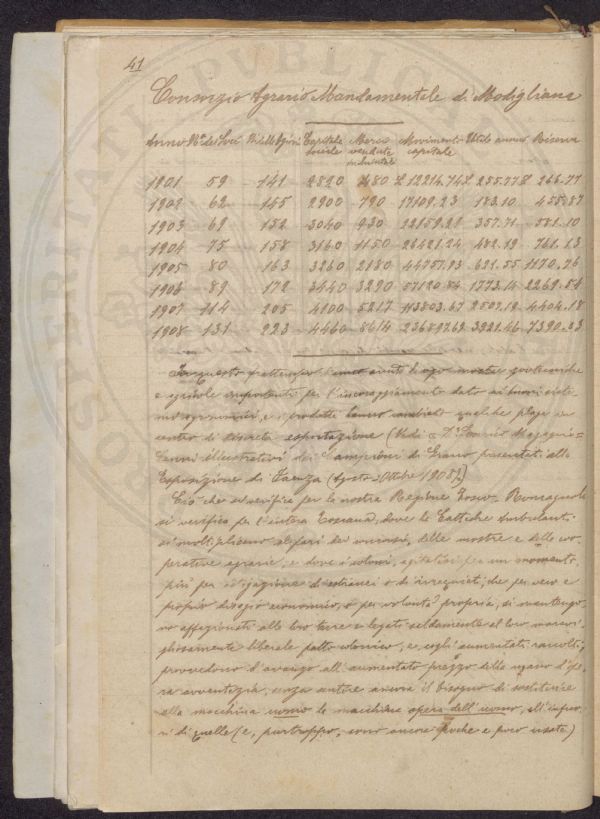 41
Consorzio Agrario Mandamentale di Modigliana
Anno No dei Soci Capitale Merce Movimento Utile annuo Riserva
sociale venduta capitale
1901 59 141 2820 680 £ 12214.74 £ 255.77 £ 266.77
1902 62 145 2900 790 17109.23 183.10 455.87
1903 69 152 3040 930 22159.21 357.71 581.10
1904 75 158 3160 1150 26421.24 482.19 761.13
1905 80 163 3260 2180 44757.93 621.55 1170.76
1906 89 172 3440 3290 57120.84 1773.14 2269.54
1907 114 205 4100 5217 113803.67 2507.19 4404.18
1908 131 223 4460 8614 236892.62 3921.46 7390.23
In questo frattempo hanno avuto luogo mostre zootecniche
e agricole importanti per l'incoraggiamento dato ai nuovi siste-
mi agronomici, e i prodotti hanno cambiato qualche plaga in
centro di discreta esportazione (Vedi Dr
Cenni illustrativi dei Campioni di Grano presentati alla
Esposizione di Faenza (Agosto Ottobre 1908).)
Ciò che si verifica per la nostra Regione Tosco-Romagnola
si verifica per l'intera Toscana, dove le Cattedre Ambulanti
si moltiplicano al pari dei consorzi, delle mostre e delle coo-
perative agrarie, e dove i coloni, agitatisi per un momento,
più per istigazione di estranei o di irrequieti, che per vero e
proprio disagio economico, o per volontà propria, si manten-
no affezionati alle loro terre e legati saldamente al loro maravi-
gliosamente liberale patto colonico, e, cogli aumentati raccolti,
provvedono d'avanzo all'aumentato prezzo della mano d'ope-
ra avventizia, senza sentire ancora il bisogno di sostituire
alla macchina uomo le macchine opera dell'uomo, all'infuo-
ri di quelle (e, purtroppo, sono ancora poche e poco usate)